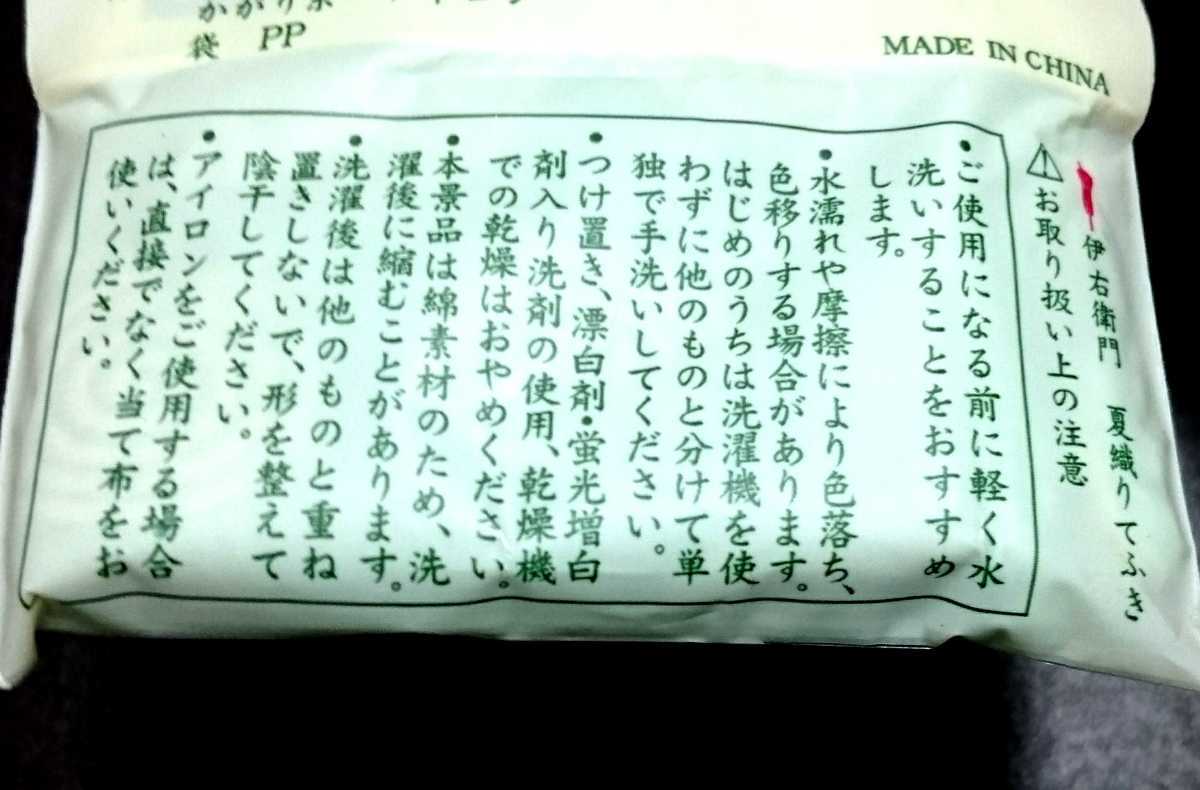 かがり糸
袋 PP
MADE IN CHINA
伊右衛門 夏織りてふき
⚠お取り扱い上の注意
•ご使用になる前に軽く水
洗いすることをおすすめ
します。
•水濡れや摩擦により色落ち、
色移りする場合があります。
はじめのうちは洗濯機を使
わずに他のものと分けて単
独で手洗いしてください。
•つけ置き、漂白剤・蛍光増白
剤入り洗剤の使用、乾燥機
での乾燥はおやめください。
•本景品は綿素材のため、洗
濯後に縮むことがあります。
•洗濯後は他のものと重ね
置きしないで、形を整えて
陰干してください。
•アイロンをご使用する場合
は、直接でなく当て布をお
使いください。